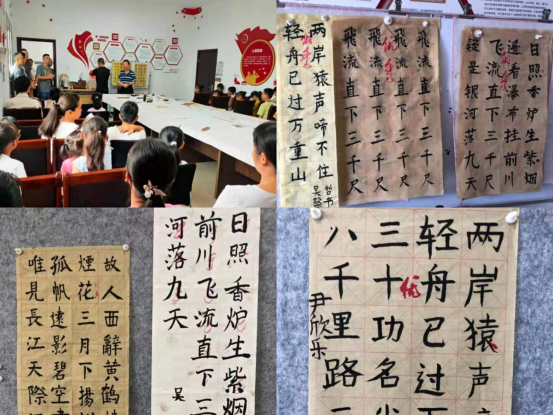 日照香炉生紫烟
遥看瀑布挂前川
飞流直下三千尺
疑是银河落九天
飛流直下三千尺
飛流直下三千尺
飛流直下三千尺
飛流直下三千尺
优
两岸猿声啼不住
轻舟已过万重山
故人西辭黄鹤
煙花三月下揚
孤帆遠影碧空
唯見長江天際
日照香炉生紫烟
前川飞流直下三
河落九天
吴
两岸猿声
轻舟已过
三十功名
八千里路
优
尹欣乐